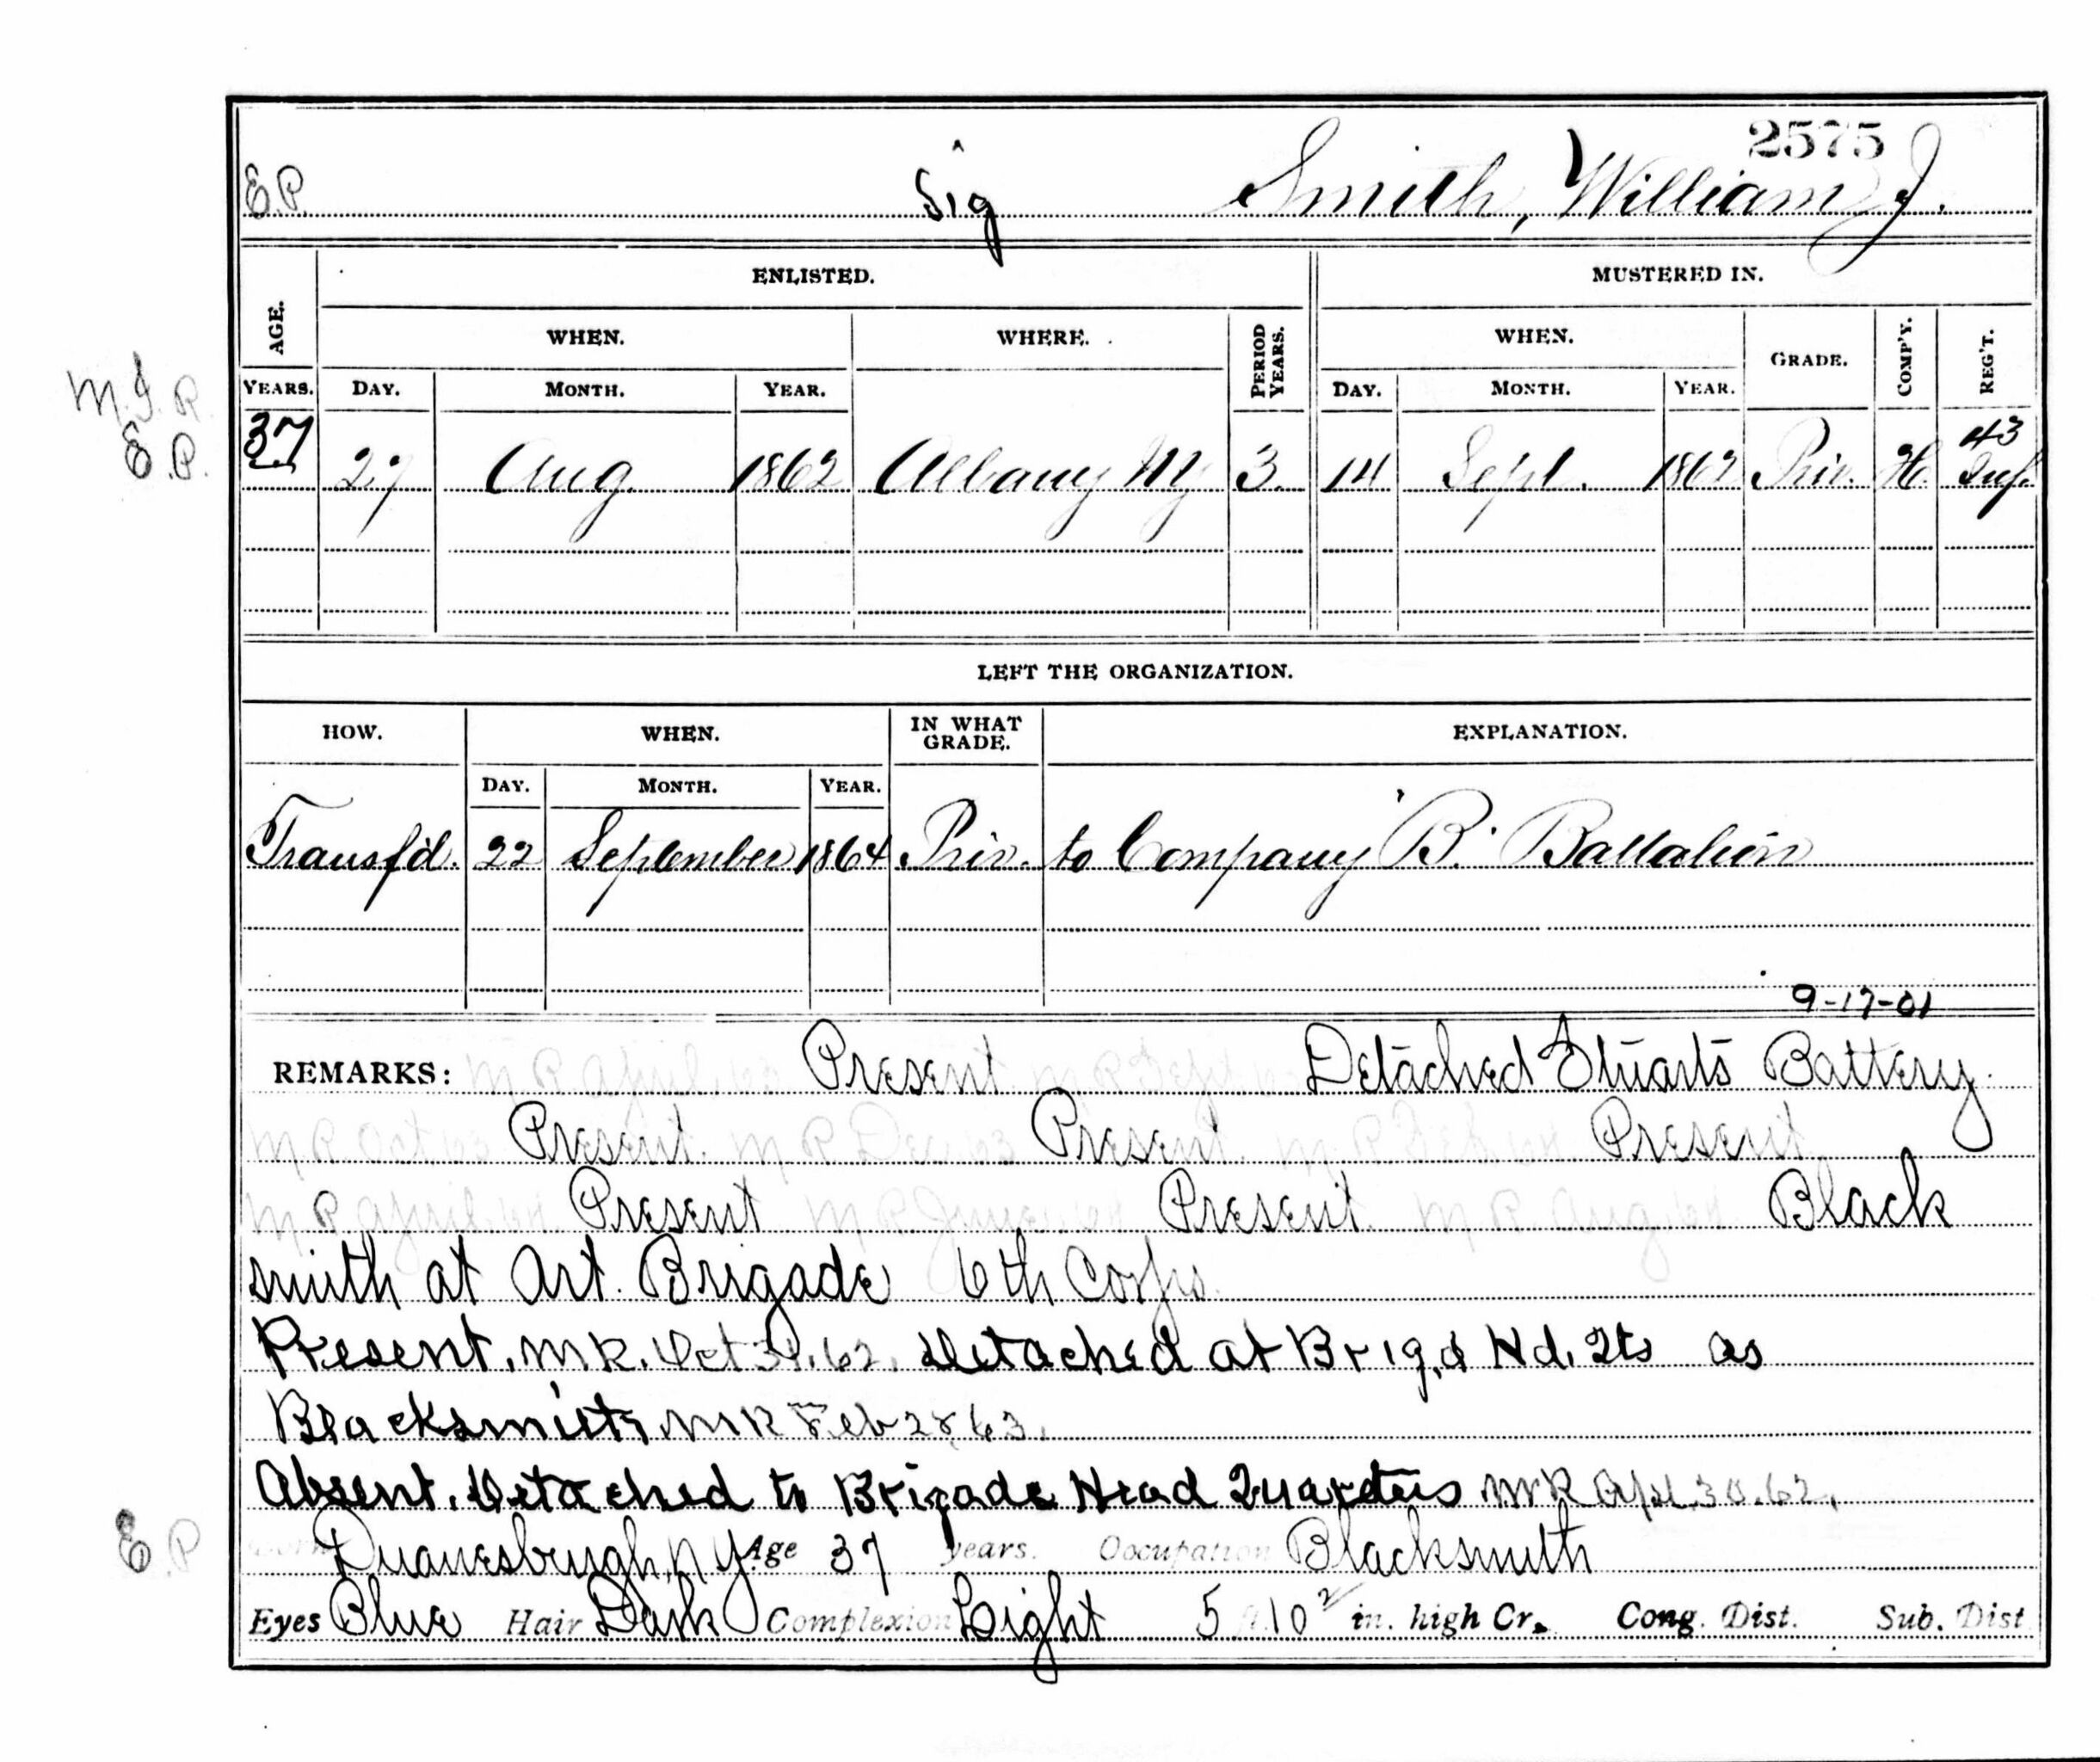 2575
E.P. Sig Smith, William J.
ENLISTED. MUSTERED IN.
AGE. WHEN. WHERE. PERIOD YEARS. WHEN. GRADE. COMP'Y. REG'T.
YEARS. DAY. MONTH. YEAR. DAY. MONTH. YEAR.
M.I.R.
E.P.
37 27 Aug 1862 Albany NY 3 14 Sept. 1862 Priv. H. 43 Inf.
LEFT THE ORGANIZATION.
HOW. WHEN. IN WHAT GRADE. EXPLANATION.
DAY. MONTH. YEAR.
Transfd. 22 September 1864 Priv. to Company B. Battalion
9-17-01
REMARKS: M.R. April Present M R Sept Detached Stuarts Battery
M.R. Oct 63 Present. M R Dec 63 Present. M.R. Feb Present.
M R April 64 Present M R June 64 Present. M.R. Aug. 64 Black
smith at Art. Brigade 6th Corps.
Present. M R. Oct 31. 62. Detached at Brig.d Hd. Qts as
Blacksmith M R Feb 28, 63.
Absent. Detached to Brigade Head Quarters M R Apl. 30. 62.
E.P Born Duanesburgh, N Y Age 37 years. Occupation Blacksmith
Eyes Blue Hair Dark Complexion Light 5 ft. 10 2/ in. high Cr. Cong. Dist. Sub. Dist